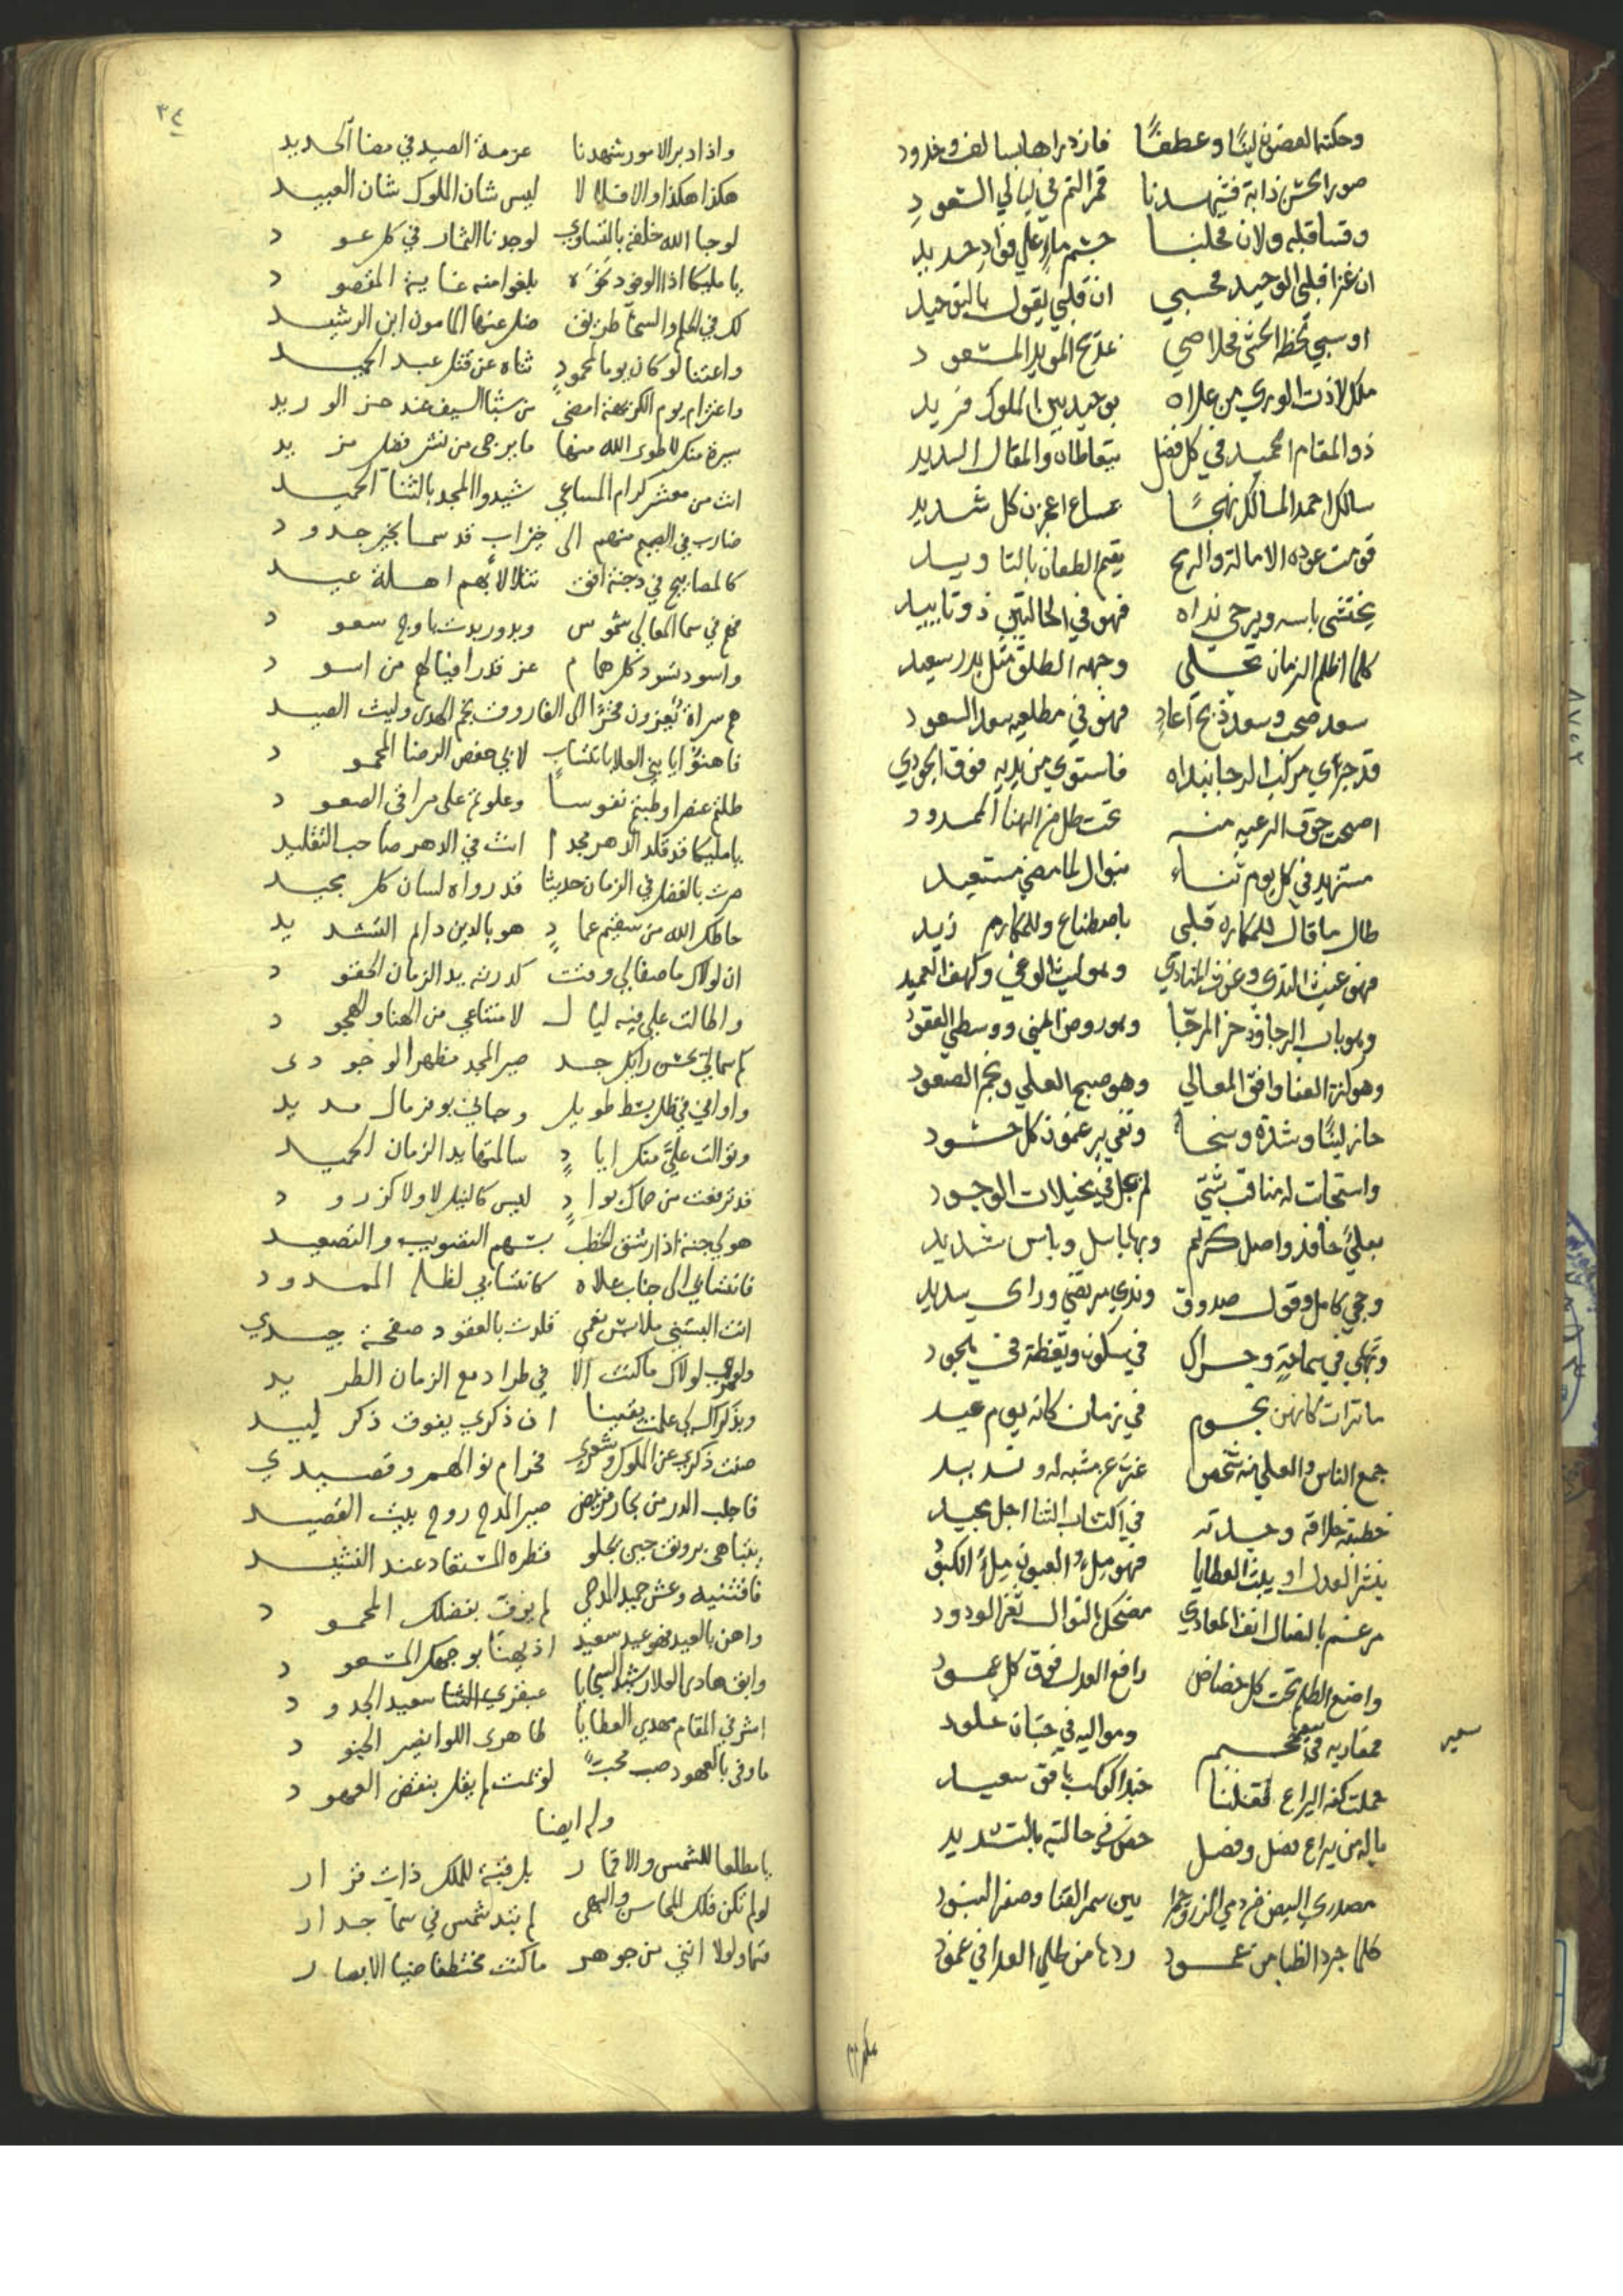 وحكته الغصون لينًا وعطفًا فازدراها بسالف وخدود
صور الحسن ذاته فشهدنا قمر التم في ليالي السعود
وقسا قلبه ولان محلنا جسم ماء على فؤاد حديد
ان غزا قلبي الوحيد فحسبي ان قلبي يقول بالتوحيد
او سبى لحظه الحشى فخلاصي بمديح المويد المسعود
ملك لاذت الورى من علاه بوحيد بين الملوك فريد
ذو المقام الحميد في كل فضل بتعاطاه والمقال السديد
سالك احمد المسالك نهجًا بمساع اعجزن كل شديد
قومت عوده الامالة والرمح يقيم الطعان بالتاويد
يختشى باسه ويرجى نداه فهو في الحالتين ذو تاييد
كلما اظلم الزمان تجلى وجهه الطلق مثل بدر سعيد
سعد صحب وسعد ذبح اعادٍ فهو في مطلعيه سعد السعود
قد جرى مركب الرجا بنداه فاستوى من يديه فوق الجودي
اصبحت حوله الرعيه منه تحت ظل من الهنا الممدود
مستزيد في كل يوم ثناء بنوال لما مضى مستعيد
طال ما قال للمكاره قلبي باصطناع وللمكارم زيد
فهو غيث الندى وغوث المنادي وهو ليث الوغى وكهف العميد
وهو باب الرجا وذخر المرجا وهو روض المنى ووسطى العقود
وهو كنز الغنا وافق المعالي وهو صبح العلى ونجم الصعود
حاز لينًا وشدة وسخاءً ونفى بر عنوة كل حسود
واستجات له مناقب شتى لم تجل في تخيلات الوجود
بعلى حافد واصل كريم وبها باسل وباس شديد
وحجى كامل وقول صدوق وندى مرتضى وراى سديد
وتهمي في سماحة وحراك في سكون ويقظة في هجود
ماثرات كانهن نجوم في زمان كانه يوم عيد
جمع الناس والعلى منه شخص عز عن مشبه له ونديد
خطبته خلافة وحدته في اكتساب الثنا اجل مجيد
ينشر العدل او يبث العطايا فهو ملء العيون ملء الكبود
مرغم بالنصال انف المعادي مضحك بالنوال ثغر الودود
واضع الظلم تحت كل حضاض رافع العدل فوق كل عمود
فمعاديه في جحيم ومواليه في جنان خلود
سعير
حملت كفه اليراع فقلنا حبذا كوكب بافق سعيد
ياله من يراع فضل وفصل خص في حالتيه بالتشديد
مصدري البيض من دمي الزرق حمرا بين سمر القنا وصفر البنود
كلما جرد الظبا من غمود ردها من طلى العدا في غمود
٣٤
واذا دبر الامور شهدنا عزمة الصيد في مضا الحديد
هكذا هكذا والا فلا لا ليس شان الملوك شان العبيد
لو حبا الله خلقه بالتساوي لوجدنا الثمار في كل عود
يا مليكا اذا الوفود نحوه بلغوا منه غاية المقصود
لك في الحلم والسخا طريق ضل عنها المامون ابن الرشيد
واعتنا لو كان يوما لمحمودٍ ثناه عن قتل عبد الحميد
واعتزام يوم الكريهة امضى من شبا السيف عند حز الوريد
سيرة منك لا طوى الله منها ما يرجى من نشر فضل مزيد
انت من معشر كرام المساعي شيدوا المجد بالثنا الحميد
ضارب في الصميم منهم الى خير اب قد سما بخير جدود
كالمصابيح في دجنة افق تتلالا بهم اهلة عيد
فهم في سما المعالي شموس وبدور بدت باوج سعود
واسود تسود كل همام عز قدرا فيالهم من اسود
هم سراة يعزون فخرًا الى الفاروق نجم الهدى وليث الصيد
فاهنوا يا بني العلا بانتساب لابي حفص الرضا المحمود
طلتم عنصرا وطبتم نفوسا وعلوتم على مراقي الصعود
يا مليكا قد قلد الدهر مجدا انت في الدهر صاحب التقليد
صرت بالفضل في الزمان حديثا قد رواه لسان كل مجيد
حاطك الله من سقيم عمادٍ هو بالدين دائم التشديد
ان لولاك ما صفا لي وقت كدرته يد الزمان الحقود
واطالت علي فيه ليال لامتناعي من الهنا والهجود
كم سما لي بحسن رايك جد صير المجد مظهرا لوجودي
واوافي في ظل بسط طويل وحباني بوفر مال مديد
وتوالت عليّ منك ايادٍ سالمتها يد الزمان الحميد
قد تربعت من حماك بوادٍ ليس كالنيل لا ولا كزرود
هو لي جنة اذا رشق الخطب بسهم التصويب والتصعيد
فانتسابي الى جناب علاه كانتسابي لظله الممدود
انت البستني ملابس نعمى قلدت بالعقود صفحة جيدي
ولعمري لولاك ما كنت الا في طراد مع الزمان الطريد
وبذكراك لي علمت يقينا ان ذكري يفوق ذكر لبيد
صنت ذكري عن الملوك وشعري فحرام نوالهم وقصيدي
فاجلب الدر من بحار قريض صير المدح روح بيت القصيد
يتباهى برونق حين يجلو قطره المستفاد عند النشيد
فاقتنيه وعش حميد المدحى لم يوف بفضلك المحمود
واهن بالعيد فهو عيد سعيد اذ يهنا بوجهك المسعود
وابق هادى العلا رشيد السجايا عبقري الثنا سعيد الجدود
اشرفي المقام مهدي العطايا ظاهرى اللوا نصير الجنود
ما وفى بالعهود صب محبّ لو يمت لم يقل بنقض العهود
وله ايضا
يا مطلعا للشمس والاقمار بل رقية للملك ذات قرار
لو لم تكن فلك المحاسن والبهى لم تبد شمس في سما جدار
قسما ولولا انني من جوهر ما كنت مختطفا ضيا الابصار